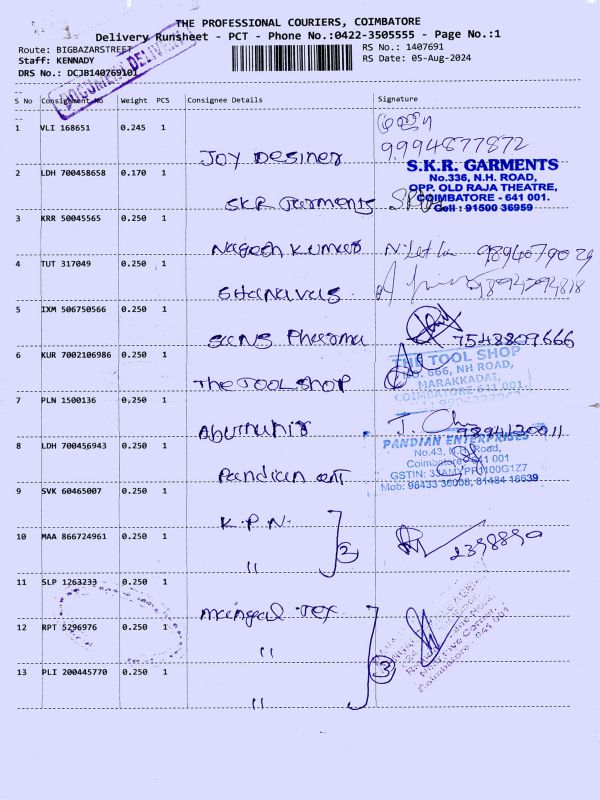 THE PROFESSIONAL COURIERS, COIMBATORE
Delivery Runsheet - PCT - Phone No.:0422-3505555 - Page No.:1
Route: BIGBAZARSTREET
RS No.: 1407691
Staff: KENNADY
RS Date: 05-Aug-2024
DRS No.: DCJB140769101
DOCUMENT DELIVERY
S No Consignment No Weight PCS Consignee Details Signature
1 VLI 168651 0.245 1 Joy Desiner
9994877872
2 LDH 700458658 0.170 1 SKR Garments
S.K.R. GARMENTS
No.336, N.H. ROAD,
OPP. OLD RAJA THEATRE,
COIMBATORE - 641 001.
Cell : 91500 36959
3 KRR 50045565 0.250 1 Nagesh Kumar
4 TUT 317049 0.250 1 Shanavas
5 IXM 506750566 0.250 1 Suns Pharma
7548809666
6 KUR 7002106986 0.250 1 The TOOL Shop
THE TOOL SHOP
NO. 666, NH ROAD,
MARAKKADAI,
COIMBATORE 641 001
7 PLN 1500136 0.250 1
8 LDH 700456943 0.250 1 Pandian ent
PANDIAN ENTERPRISES
No.43, N.H. Road,
Coimbatore - 641 001
GSTIN: 33AMYPP1100G1Z7
Mob: 98433 36008, 81484 18639
9 SVK 60465007 0.250 1 K.P.N.
10 MAA 866724961 0.250 1 "
2
2398890
11 SLP 1263233 0.250 1 Mangal Tex
12 RPT 5296976 0.250 1 "
13 PLI 200445770 0.250 1 "
3